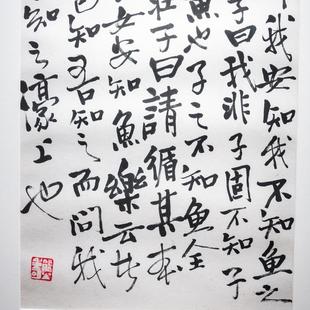 我安知我不知鱼之
子曰我非子固不知子
鱼也子之不知鱼全
莊子曰請循其本
安知魚樂云者
已知吾知之而問我
知之濠上也